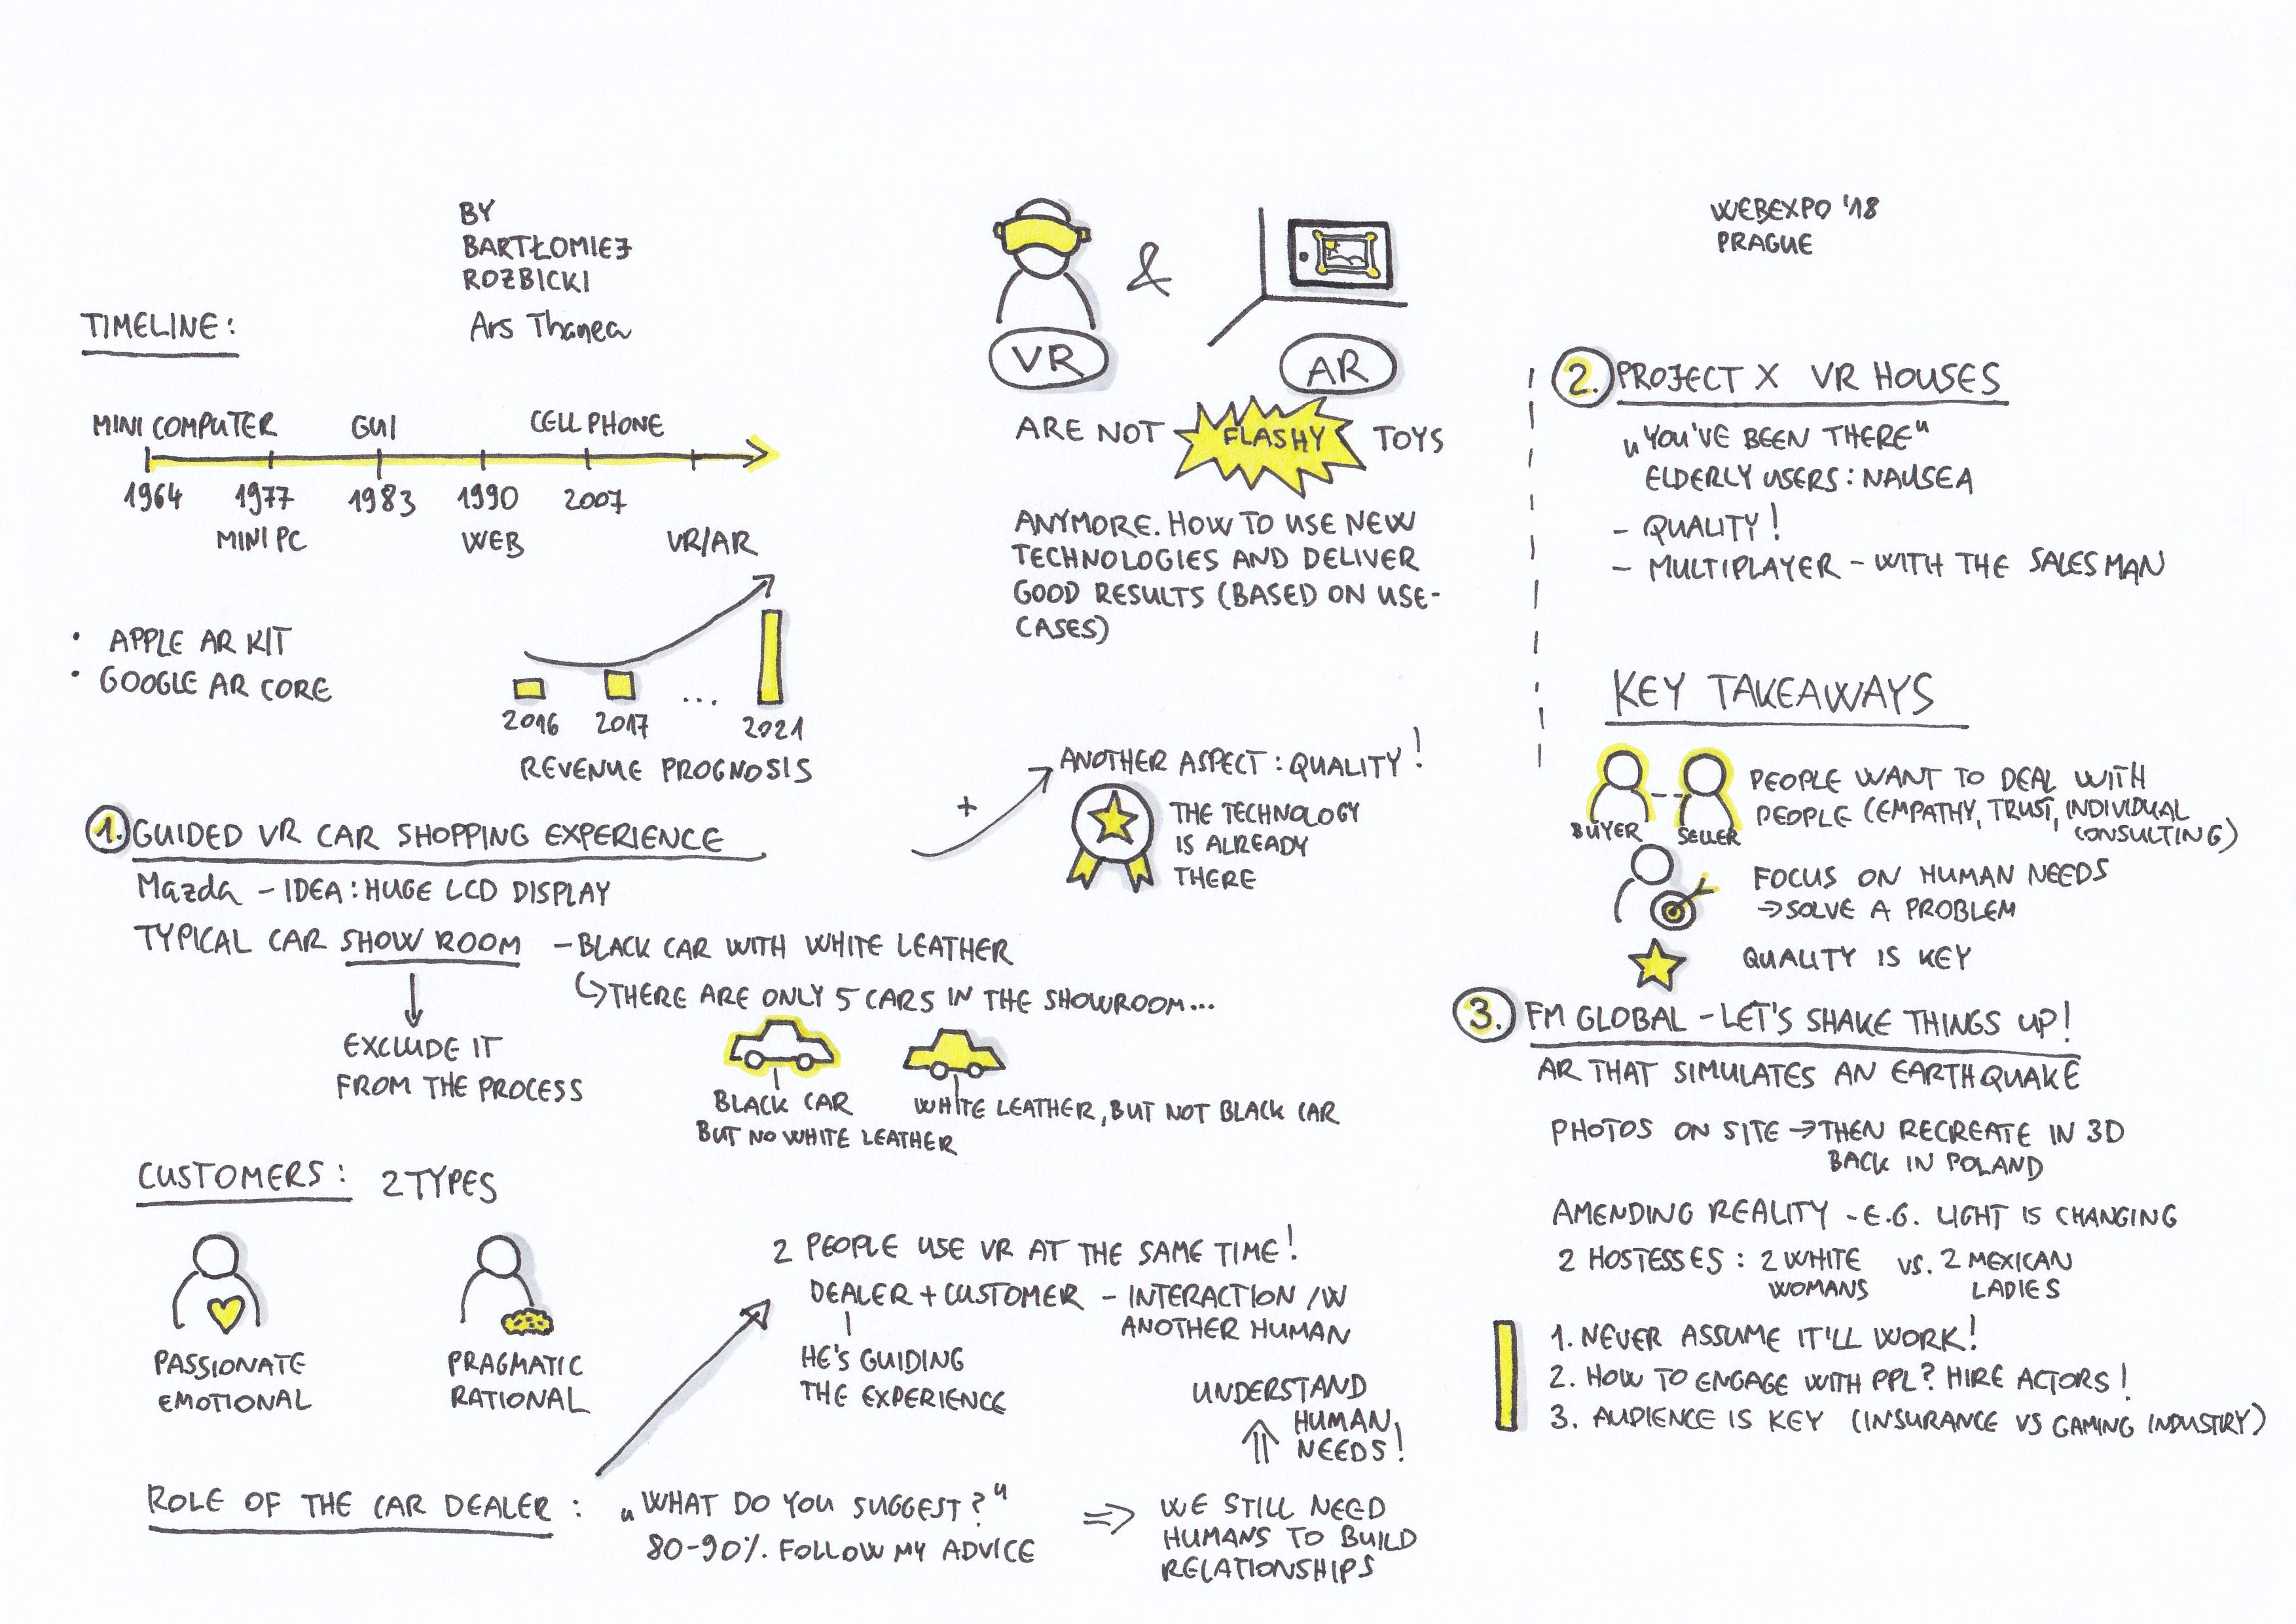 BY
BARTŁOMIEJ
ROZBICKI
Ars Thanea
WEBEXPO '18
PRAGUE
VR
&
AR
ARE NOT FLASHY TOYS
ANYMORE. HOW TO USE NEW
TECHNOLOGIES AND DELIVER
GOOD RESULTS (BASED ON USE-
CASES)
TIMELINE:
MINI COMPUTER GUI CELL PHONE
1964 1977 1983 1990 2007
MINI PC WEB VR/AR
• APPLE AR KIT
• GOOGLE AR CORE
2016 2017 ... 2021
REVENUE PROGNOSIS
1. GUIDED VR CAR SHOPPING EXPERIENCE
Mazda - IDEA: HUGE LCD DISPLAY
TYPICAL CAR SHOW ROOM - BLACK CAR WITH WHITE LEATHER
↳ THERE ARE ONLY 5 CARS IN THE SHOWROOM...
EXCLUDE IT
FROM THE PROCESS
BLACK CAR
BUT NO WHITE LEATHER
WHITE LEATHER, BUT NOT BLACK CAR
+
ANOTHER ASPECT: QUALITY!
THE TECHNOLOGY
IS ALREADY
THERE
CUSTOMERS: 2 TYPES
PASSIONATE
EMOTIONAL
PRAGMATIC
RATIONAL
2 PEOPLE USE VR AT THE SAME TIME!
DEALER + CUSTOMER - INTERACTION /W
ANOTHER HUMAN
HE'S GUIDING
THE EXPERIENCE
ROLE OF THE CAR DEALER: „WHAT DO YOU SUGGEST?"
80-90%. FOLLOW MY ADVICE
⇒ WE STILL NEED
HUMANS TO BUILD
RELATIONSHIPS
UNDERSTAND
HUMAN
NEEDS!
2. PROJECT X VR HOUSES
„YOU'VE BEEN THERE"
ELDERLY USERS: NAUSEA
- QUALITY!
- MULTIPLAYER - WITH THE SALESMAN
KEY TAKEAWAYS
BUYER SELLER
PEOPLE WANT TO DEAL WITH
PEOPLE (EMPATHY, TRUST, INDIVIDUAL
CONSULTING)
FOCUS ON HUMAN NEEDS
→ SOLVE A PROBLEM
QUALITY IS KEY
3. FM GLOBAL - LET'S SHAKE THINGS UP!
AR THAT SIMULATES AN EARTHQUAKE
PHOTOS ON SITE → THEN RECREATE IN 3D
BACK IN POLAND
AMENDING REALITY - E.G. LIGHT IS CHANGING
2 HOSTESSES: 2 WHITE
WOMANS
VS. 2 MEXICAN
LADIES
1. NEVER ASSUME IT'LL WORK!
2. HOW TO ENGAGE WITH PPL? HIRE ACTORS!
3. AUDIENCE IS KEY (INSURANCE VS GAMING INDUSTRY)